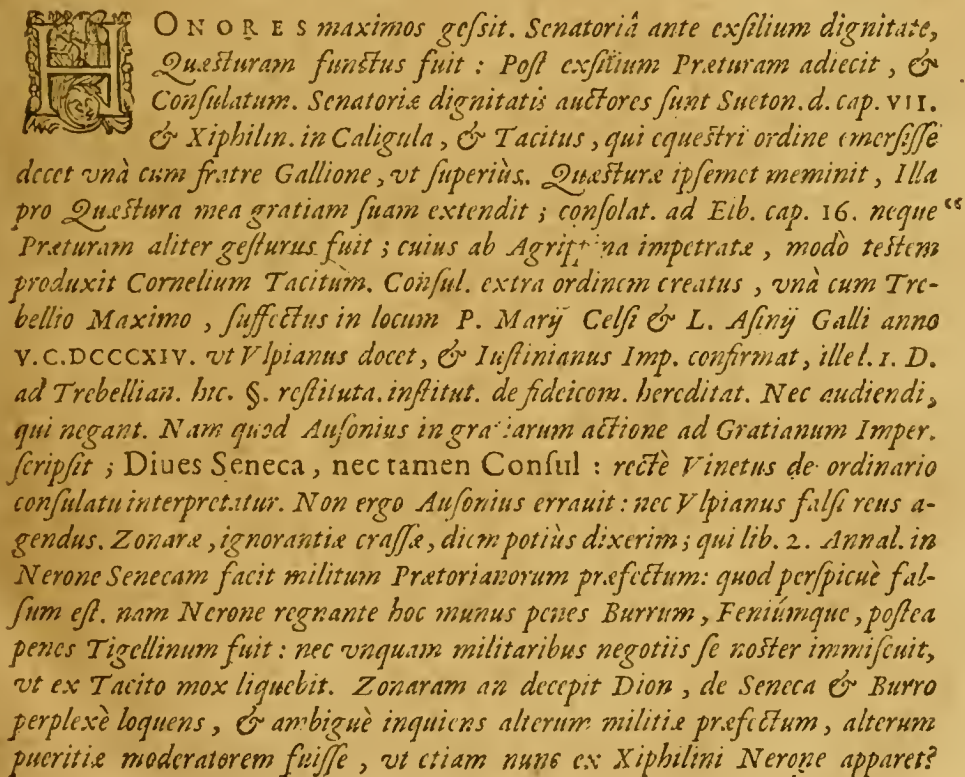 HONORES maximos geſsit. Senatoriâ ante exſilium dignitate,
Quæſturam functus fuit : Poſt exſilium Præturam adiecit, &
Conſulatum. Senatoriæ dignitatis auctores ſunt Sueton. d. cap. VII.
& Xiphilin. in Caligula, & Tacitus, qui equeſtri ordine emerſiſſe
docet vnà cum fratre Gallione, vt ſuperiùs. Quæſturæ ipſemet meminit, Illa
pro Quæſtura mea gratiam ſuam extendit ; conſolat. ad Elb. cap. 16. neque “
Præturam aliter geſturus fuit ; cuius ab Agrippina impetratæ, modò teſtem
produxit Cornelium Tacitum. Conſul. extra ordinem creatus, vnà cum Tre-
bellio Maximo, ſuffectus in locum P. Marij Celſi & L. Aſinij Galli anno
V.C.DCCCXIV. vt Vlpianus docet, & Iuſtinianus Imp. confirmat, ille l. 1. D.
ad Trebellian. hic. §. reſtituta. inſtitut. de fideicom. hereditat. Nec audiendi,
qui negant. Nam quod Auſonius in gratiarum actione ad Gratianum Imper.
ſcripſit ; Diues Seneca, nec tamen Conſul : rectè Vinetus de ordinario
conſulatu interpretatur. Non ergo Auſonius errauit : nec Vlpianus falſi reus a-
gendus. Zonaræ, ignorantiæ craſſæ, diem potiùs dixerim ; qui lib. 2. Annal. in
Nerone Senecam facit militum Prætorianorum præfectum: quod perſpicuè fal-
ſum eſt. nam Nerone regnante hoc munus penes Burrum, Feniúmque, poſtea
penes Tigellinum fuit : nec vnquam militaribus negotiis ſe noſter immiſcuit,
vt ex Tacito mox liquebit. Zonaram an decepit Dion, de Seneca & Burro
perplexè loquens, & ambiguè inquiens alterum militiæ præfectum, alterum
pueritiæ moderatorem fuiſſe, vt etiam nunc ex Xiphilini Nerone apparet?